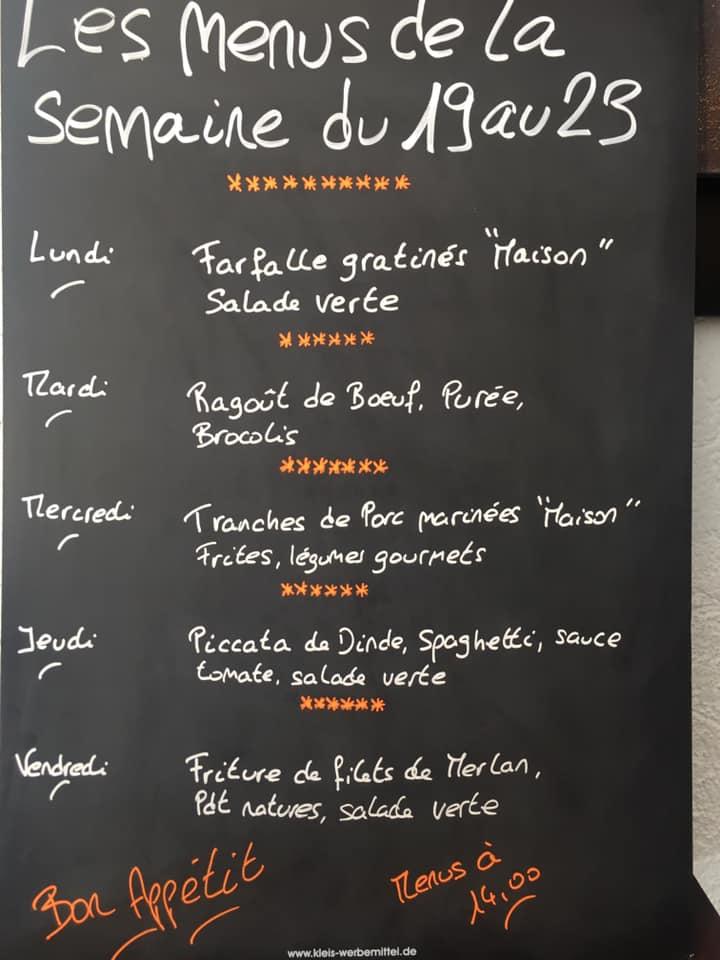 Les Menus de la
semaine du 19 au 23
**********
Lundi Farfalle gratinés "Maison"
Salade verte
******
Mardi Ragoût de Boeuf, Purée,
Brocolis
*******
Mercredi Tranches de Porc marinées "Maison"
Frites, légumes gourmets
******
Jeudi Piccata de Dinde, Spaghetti, sauce
tomate, salade verte
******
Vendredi Friture de filets de Merlan,
Pdt natures, salade verte
Bon Appétit
Menus à
14,00
www.kleis-werbemittel.de